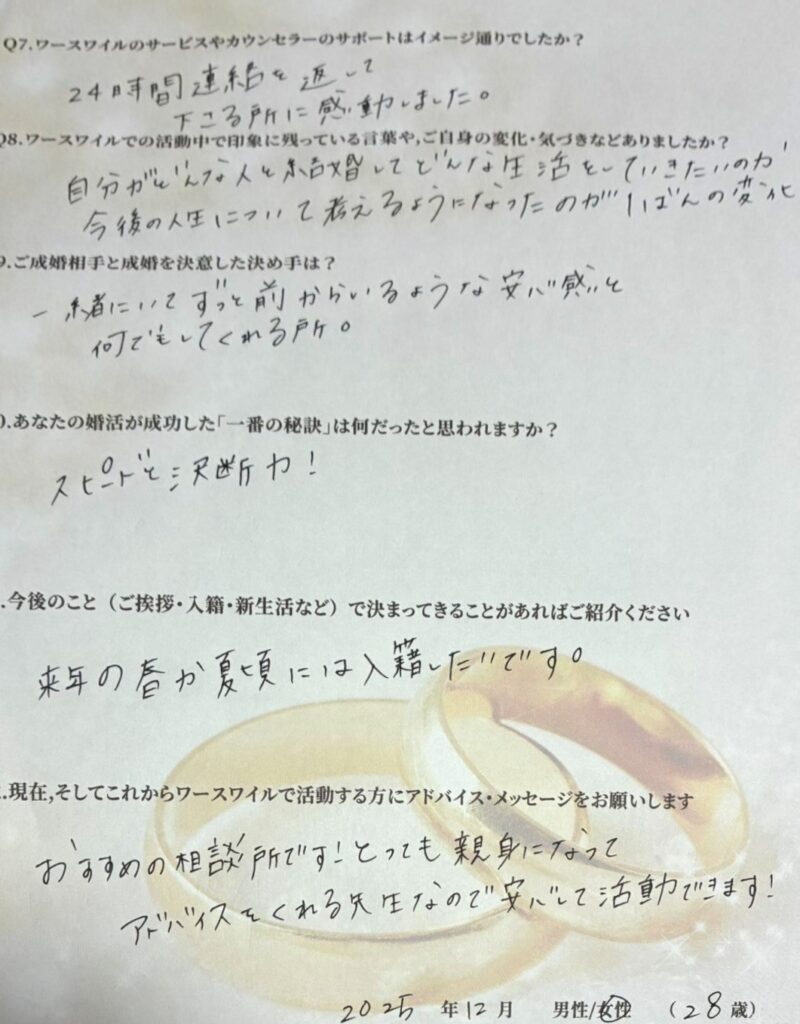 Q7.ワースワイルのサービスやカウンセラーのサポートはイメージ通りでしたか?
24時間連絡を返して
下さる所に感動しました。
Q8.ワースワイルでの活動中で印象に残っている言葉や,ご自身の変化・気づきなどありましたか?
自分がどんな人と結婚してどんな生活をしていきたいのか
今後の人生について考えるようになったのがいちばんの変化
9.ご成婚相手と成婚を決意した決め手は?
一緒にいてずっと前からいるような安心感と
何でもしてくれる所。
0.あなたの婚活が成功した「一番の秘訣」は何だったと思われますか?
スピードと決断力!
.今後のこと(ご挨拶・入籍・新生活など)で決まってきることがあればご紹介ください
来年の春か夏頃には入籍したいです。
.現在,そしてこれからワースワイルで活動する方にアドバイス・メッセージをお願いします
おすすめの相談所です!とっても親身になって
アドバイスをくれる先生なので安心して活動できます!
2025年12月 男性/女性 (28歳)